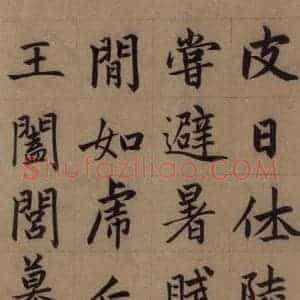 皮日休陸
嘗避暑賦
閒如虎
王闔閭墓
Shufaziliao.com